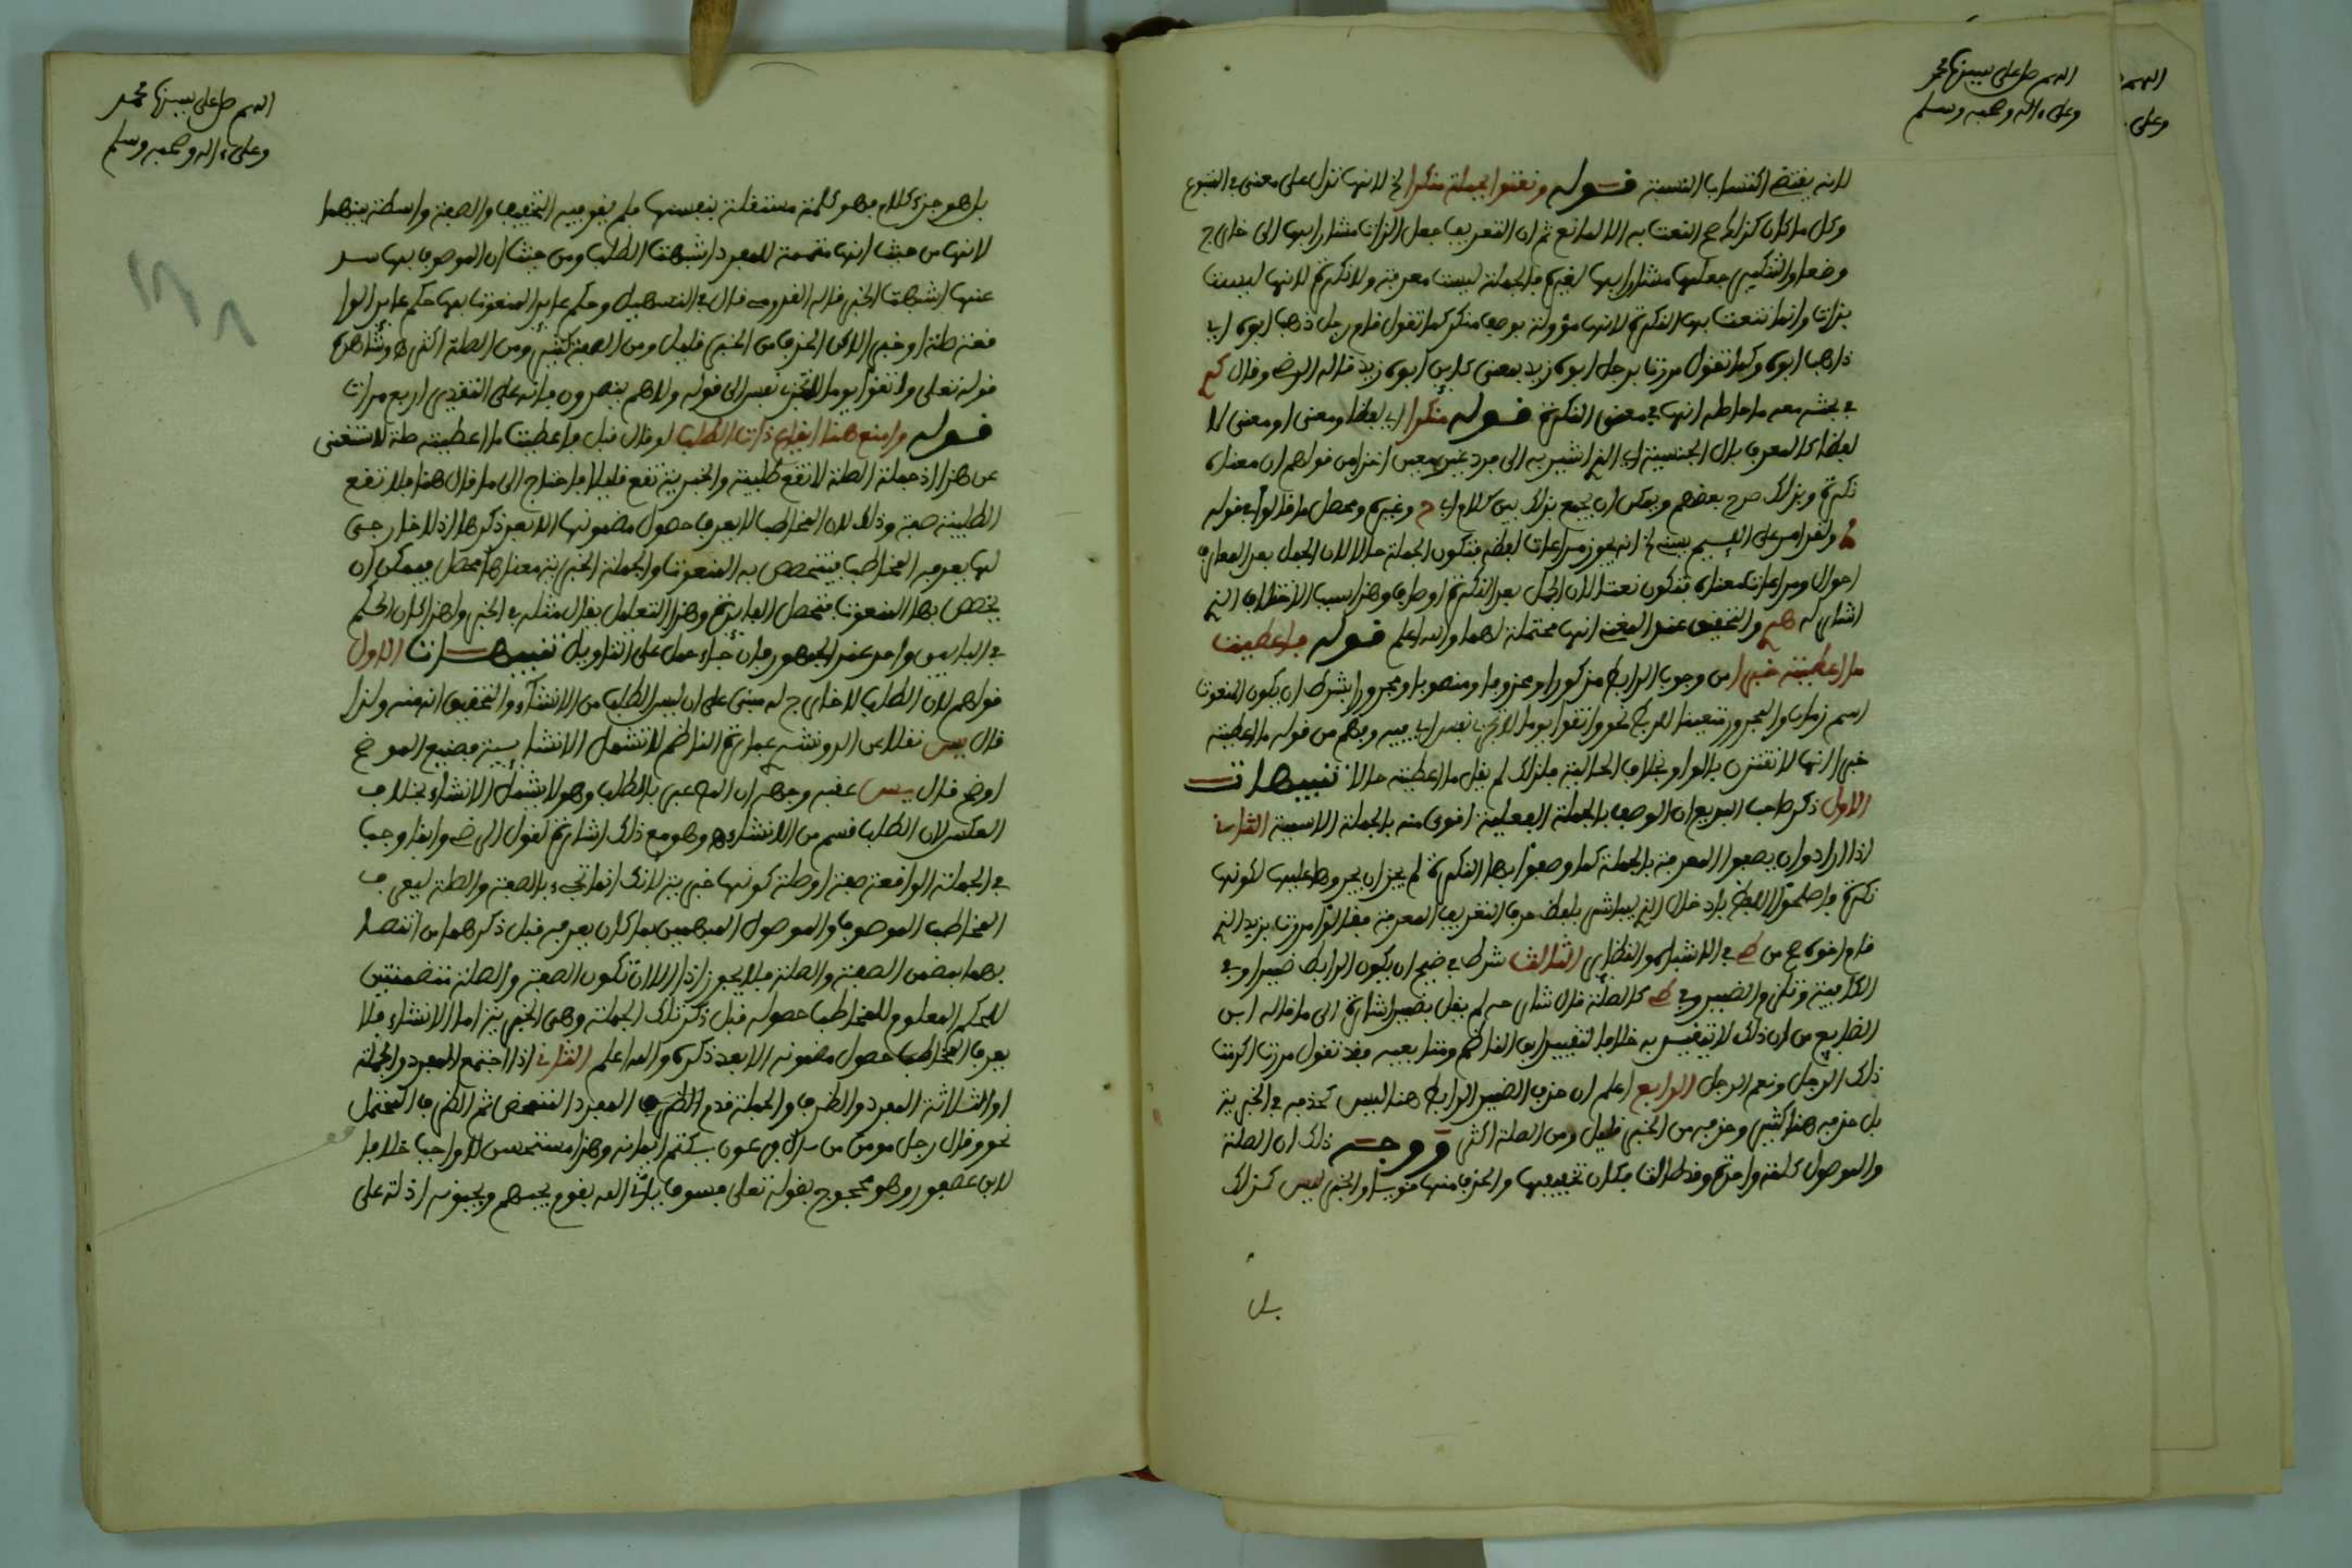 اللهم صل على سيدنا محمد
وعلى ءاله وصحبه وسلم
لانه يقتضي اكتساب النسبة قوله ونعتوا بجملة منكرا الخ لانها تدل على معنى في المتبوع
وكل ما كان كذلك صح النعت به الا لمانع ثم ان التعريف جعل الذات مشارا بها الى خارج
وضعا والتنكير جعلها مشارا بها لغيره فالجملة ليست معرفة ولا نكرة لانها ليست
بذات وانما تنعت بها النكرة لانها مؤولة بوصف منكر كما تقول قام رجل ذهب ابوه اي
ذاهب ابوه وكما تقول مررت برجل ابوه زيد بمعنى كاين ابوه زيد قاله الرضي وقال
في بحث معه ما حاصله انها في معنى النكرة قوله منكرا اي لفظا ومعنى او معنى لا
لفظا كالمعرف بال الجنسية اي الذي اشير به الى فرد غير معين اخذا من قولهم ان معناه
نكرة وبذلك صرح بعضهم ويمكن ان يجمع بذلك بين كلام اب ح وغيره ومحصل ما قالوا في قوله
ولقد امر على اللئيم يسبني الخ انه يجوز مراعات لفظه فتكون الجملة حالا لان الجمل بعد المعارف
احوال ومراعات معناه فتكون نعتا لان الجمل بعد النكرة اوصاف وهذا سبب الاختلاف الذي
اشار له والتحقيق عند المغني انها محتملة لهما والله اعلم قوله فاعطيت
ما اعطيته خبرا من وجوب الرابط مذكورا ومحذوفا ومنصوبا ومجرورا بشرط ان يكون المنعوت
اسم زمان والمجرور متعينا للربط نحو واتقوا يوما لا تجزي نفس اي فيه وفهم من قوله ما اعطيته
خبرا انها لا تقترن بالواو بخلاف الحالية فلذلك لم يقل ما اعطيته حالا تنبيهات
الاول ذكر صاحب البديع ان الوصف بالجملة الفعلية اقوى منه بالجملة الاسمية الثاني
اذا ارادوا ان يصفوا المعرفة بالجملة كما وصفوا بها النكرة لم يجز ان يجروها عليها لكونها
نكرة فاصلحوا اللفظ بادخال الذي ليباشر بلفظ حرف التعريف المعرفة فقالوا مررت بزيد الذي
قام اخوه من في الاشباه والنظاير الثالث شرط في ان يكون الرابط ضميرا وفي
الكافية وتلي والضمير وفي كالصلة قال شارحه لم يقل بضمير اشارة الى ما قاله ابن
الضايع من ان ذلك لا يتقيد به خلافا لتقييد ابن الناظم ومتابعيه فقد تقول مررت اكرمت
ذلك الرجل ونعم الرجل الرابع اعلم ان حذف الضمير الرابط هنا ليس كحذفه في الخبرية
بل حذفه هنا كثير وحذفه من الخبر قليل ومن الصلة اكثر ووجه ذلك ان الصلة
والموصول كلمة واحدة وقد طالت فكان تخفيفها والحذف منها مناسبا والخبر ليس كذلك
بل
اللهم صل على سيدنا محمد
وعلى ءاله وصحبه وسلم
بل هو جزء كلام فهو كلمة مستقلة بنفسها فلم يقو فيه التخفيف والصفة واسطة بينهما
لانها من حيث انها متممة للمفرد اشبهت الصلة ومن حيث ان الموصوف بها
عنها اشبهت الخبر قاله قال في التسهيل وحكم عايد المنعوت بها حكم عايد الواقعة صلة
او خبر لكن الحذف من الخبر قليل ومن الصفة كثير ومن الصلة اكثر وشاهده
قوله تعلى واتقوا يوما لا تجزي نفس الى قوله ولا هم ينصرون فانه على التقدير اربع مرات
قوله وامنع هنا ايقاع ذات الطلب لو قال قبل فاعطيت ما اعطيته صلة لاستغنى
عن هذا اذ جملة الصلة لا تقع طلبية والخبرية تقع قليلا فاحتاج الى ما قال هنا فلا تقع
الطلبية صفة وذلك لان المخاطب لا يعرف حصول مضمونها الا بعد ذكرها اذ لا خارجي
لها يعرفه المخاطب فيتخصص به المنعوت والجملة الخبرية معناها محصل فيمكن ان
يخصص بها المنعوت فتحصل الفايدة وهذا التعليل يقال مثله في الخبر ولهذا كان الحكم
في البابين واحد عند الجمهور فان جاء حمل على التاويل تنبيهات الاول
قولهم لان الطلب لا خارج له مبني على ان ليس الطلب من الانشاء والتحقيق انه منه ولذا
قال يس نقلا عن الدنوشري عبارة الناظم لا تشمل الانشاء بعت فصنيع الموضح
اوضح قال يس عقبه وجهه ان المص عبر بالطلب وهو لا يشمل الانشاء بخلاف
العكس لان الطلب قسم من الانشاء وهو مع ذلك اشارة لقول الرضى وانما وجب
في الجملة الواقعة صفة او صلة كونها خبرية لانك انما تجيء بالصفة والصلة ليعرف
المخاطب الموصوف والموصول المبهمين بما كان يعرفه قبل ذكرهما من اتصافهما
بمضمن الصفة والصلة فلا يجوز اذا الا ان تكون الصفة والصلة متضمنتين
للحكم المعلوم للمخاطب حصوله قبل ذكر تلك الجملة وهي الخبرية اما الانشاء فلا
يعرف المخاطب حصول مضمونه الا بعد ذكره والله اعلم الثاني اذا اجتمع المفرد والجملة
او الثلاثة المفرد والظرف والجملة قدم المفرد المتمحض ثم الظرف المحتمل
نحو وقال رجل مومن من ءال فرعون يكتم ايمانه وهذا مستحسن لا واجب خلافا
لابن عصفور وهو محجوج بقوله تعلى فسوف ياتي الله بقوم يحبهم ويحبونه اذلة على